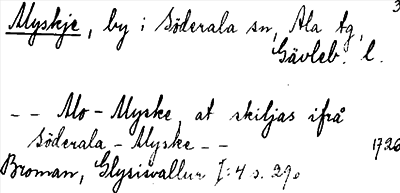 3
Myskje, by i Söderala sn, Ala tg,
Gävleb. l.
-- Mo - Myske, at skiljas ifrå
Söderala - Myske -- 1726
Broman, Glysisvallur I:4 s. 290